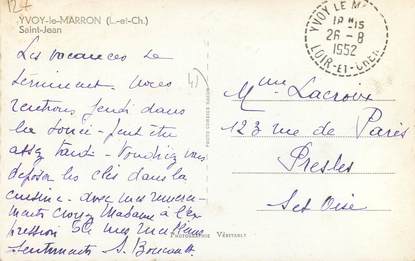 124
YVOY-le-MARRON (L.-et-Ch.)
Saint-Jean
YVOY LE M
18 H 15
26 - 8
1952
LOIR-ET-CHER
Les vacances se
terminent. Nous
rentrons jeudi dans
la soirée - peut être
assez tard - Voudriez vous
déposer les clés dans la
cuisine - avec mes remercie-
ments croyez Madame à l'ex
pression de mes meilleurs
sentiments S.
Mme Lacroux
123 rue de Paris
Presles
Set Oise
PHOTOGRAPHIE VÉRITABLE